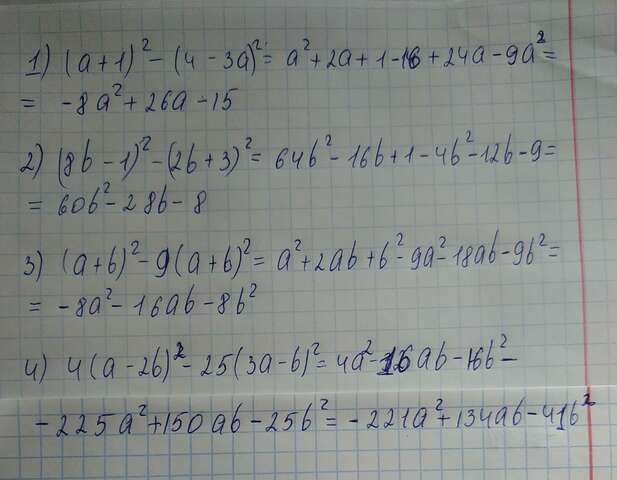 1) (a+1)² - (4-3a)² = a²+2a+1-16+24a-9a² =
= -8a²+26a-15
2) (8b-1)² - (2b+3)² = 64b²-16b+1-4b²-12b-9 =
= 60b²-28b-8
3) (a+b)² - 9(a+b)² = a²+2ab+b²-9a²-18ab-9b² =
= -8a²-16ab-8b²
4) 4(a-2b)² - 25(3a-b)² = 4a²-16ab-16b²-
-225a²+150ab-25b² = -221a²+134ab-41b²